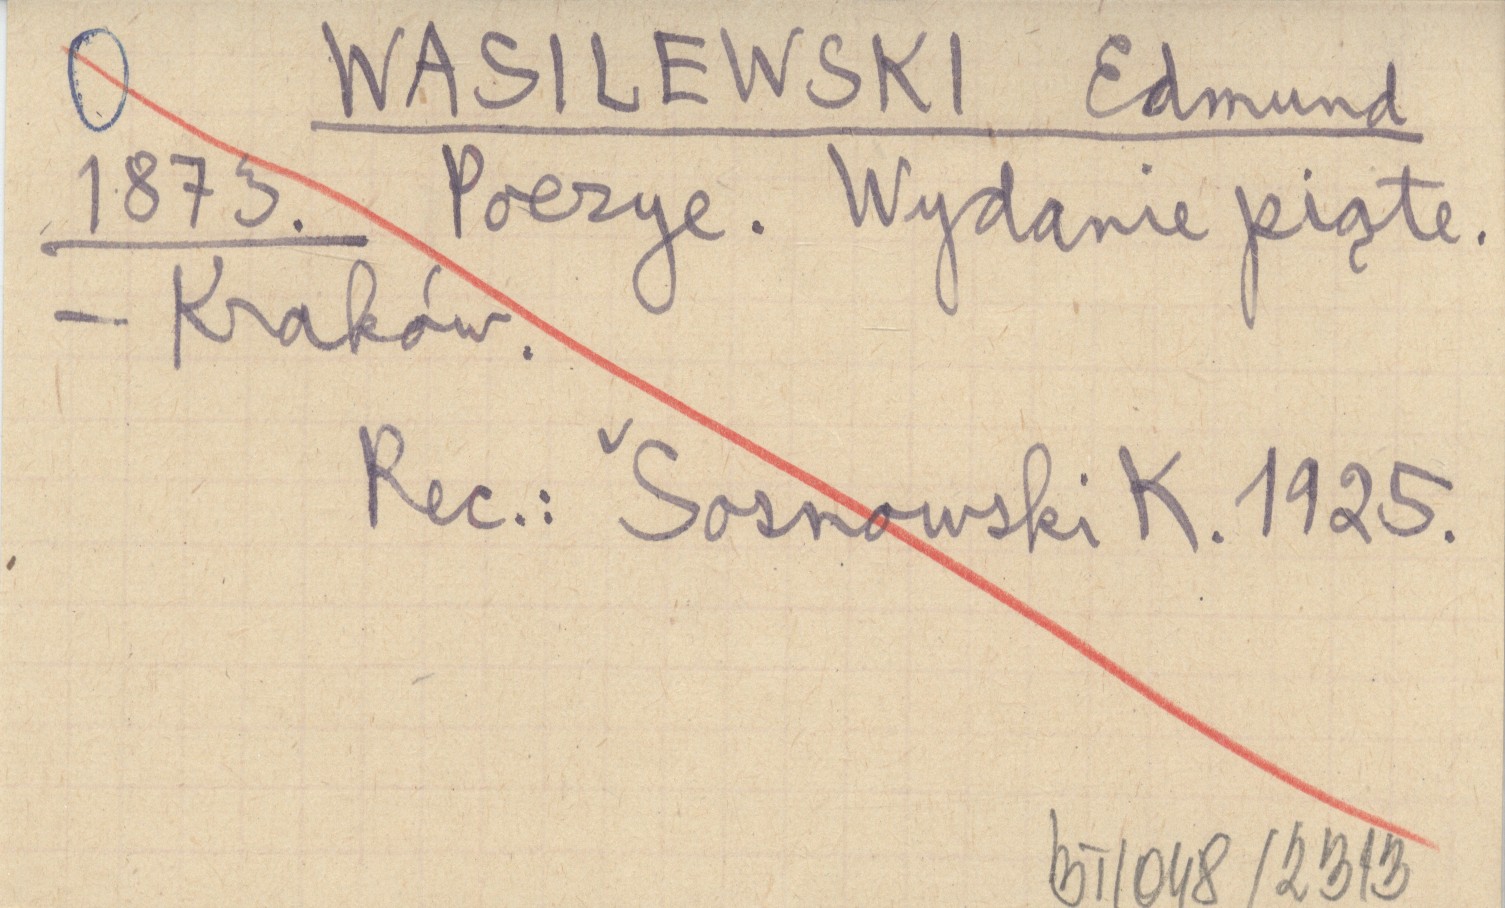 WASILEWSKI Edmund
1873. Poezye. Wydanie piąte.
– Kraków.
Rec.: Sosnowski K. 1925.
BI/048/2313